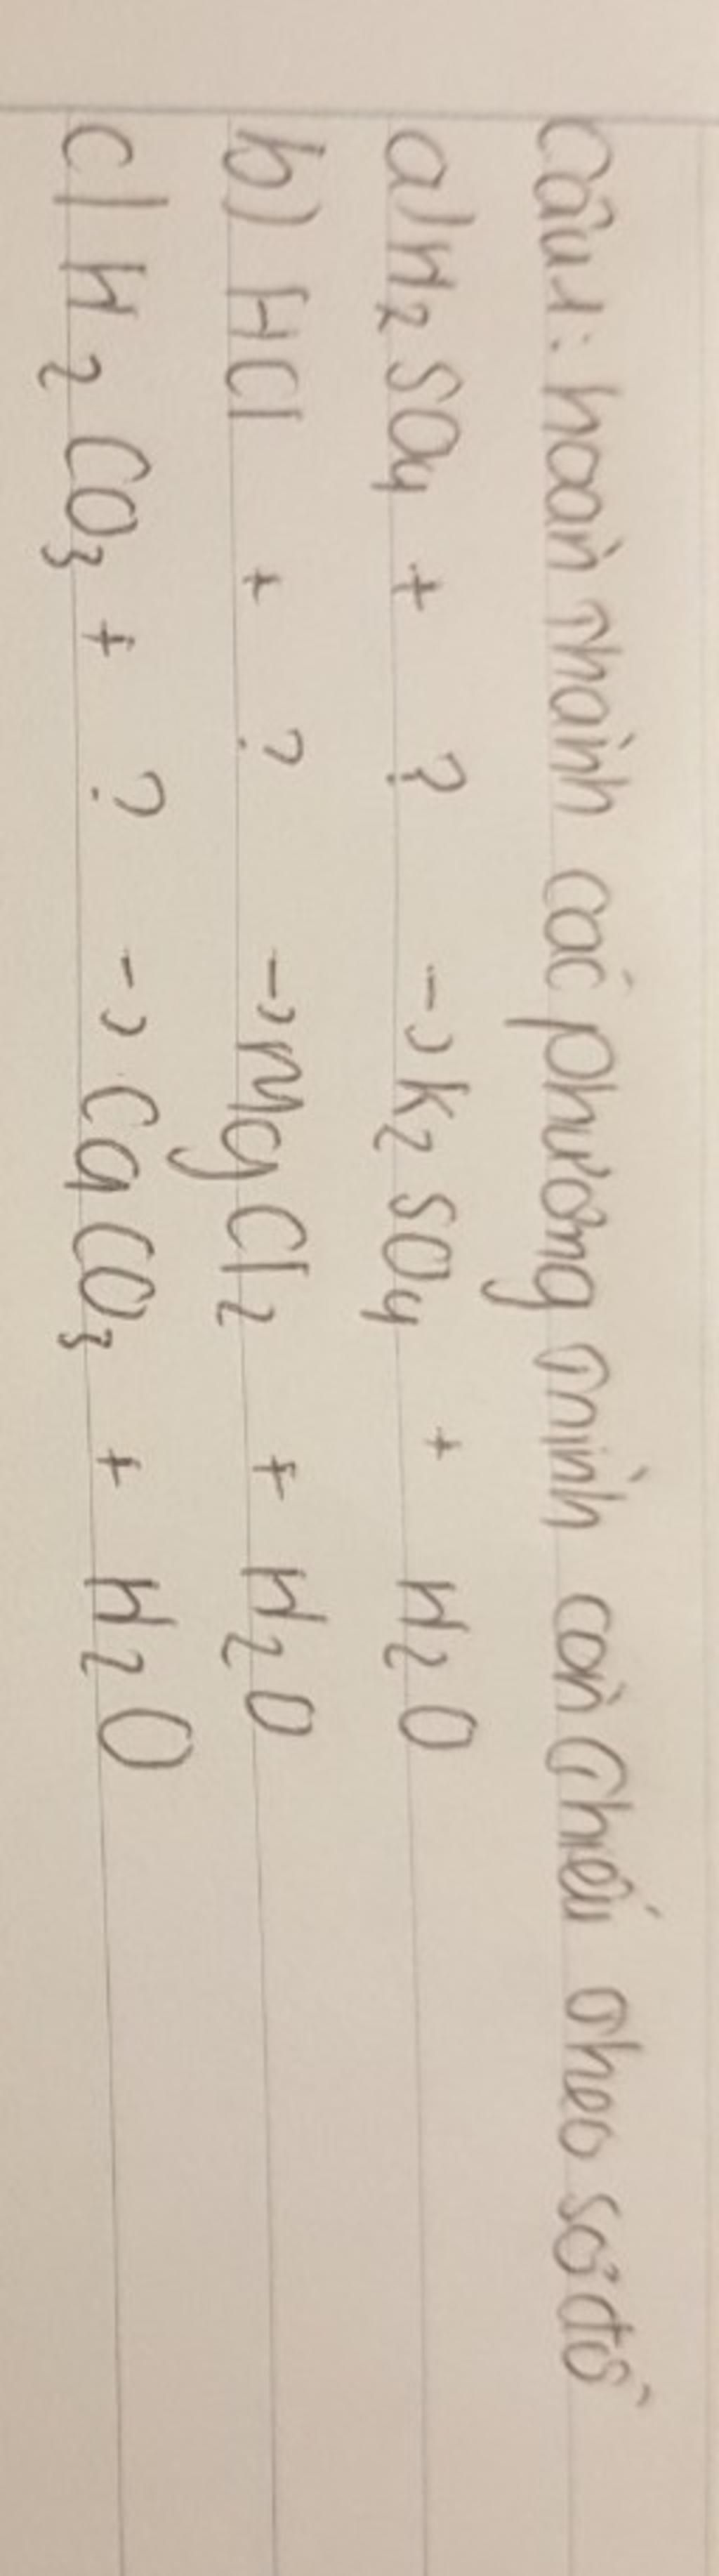 Câu 1: hoàn thành các phương trình còn thiếu theo sơ đồ
a) H2SO4 + ? -> K2SO4 + H2O
b) HCl + ? -> MgCl2 + H2O
c) H2CO3 + ? -> CaCO3 + H2O